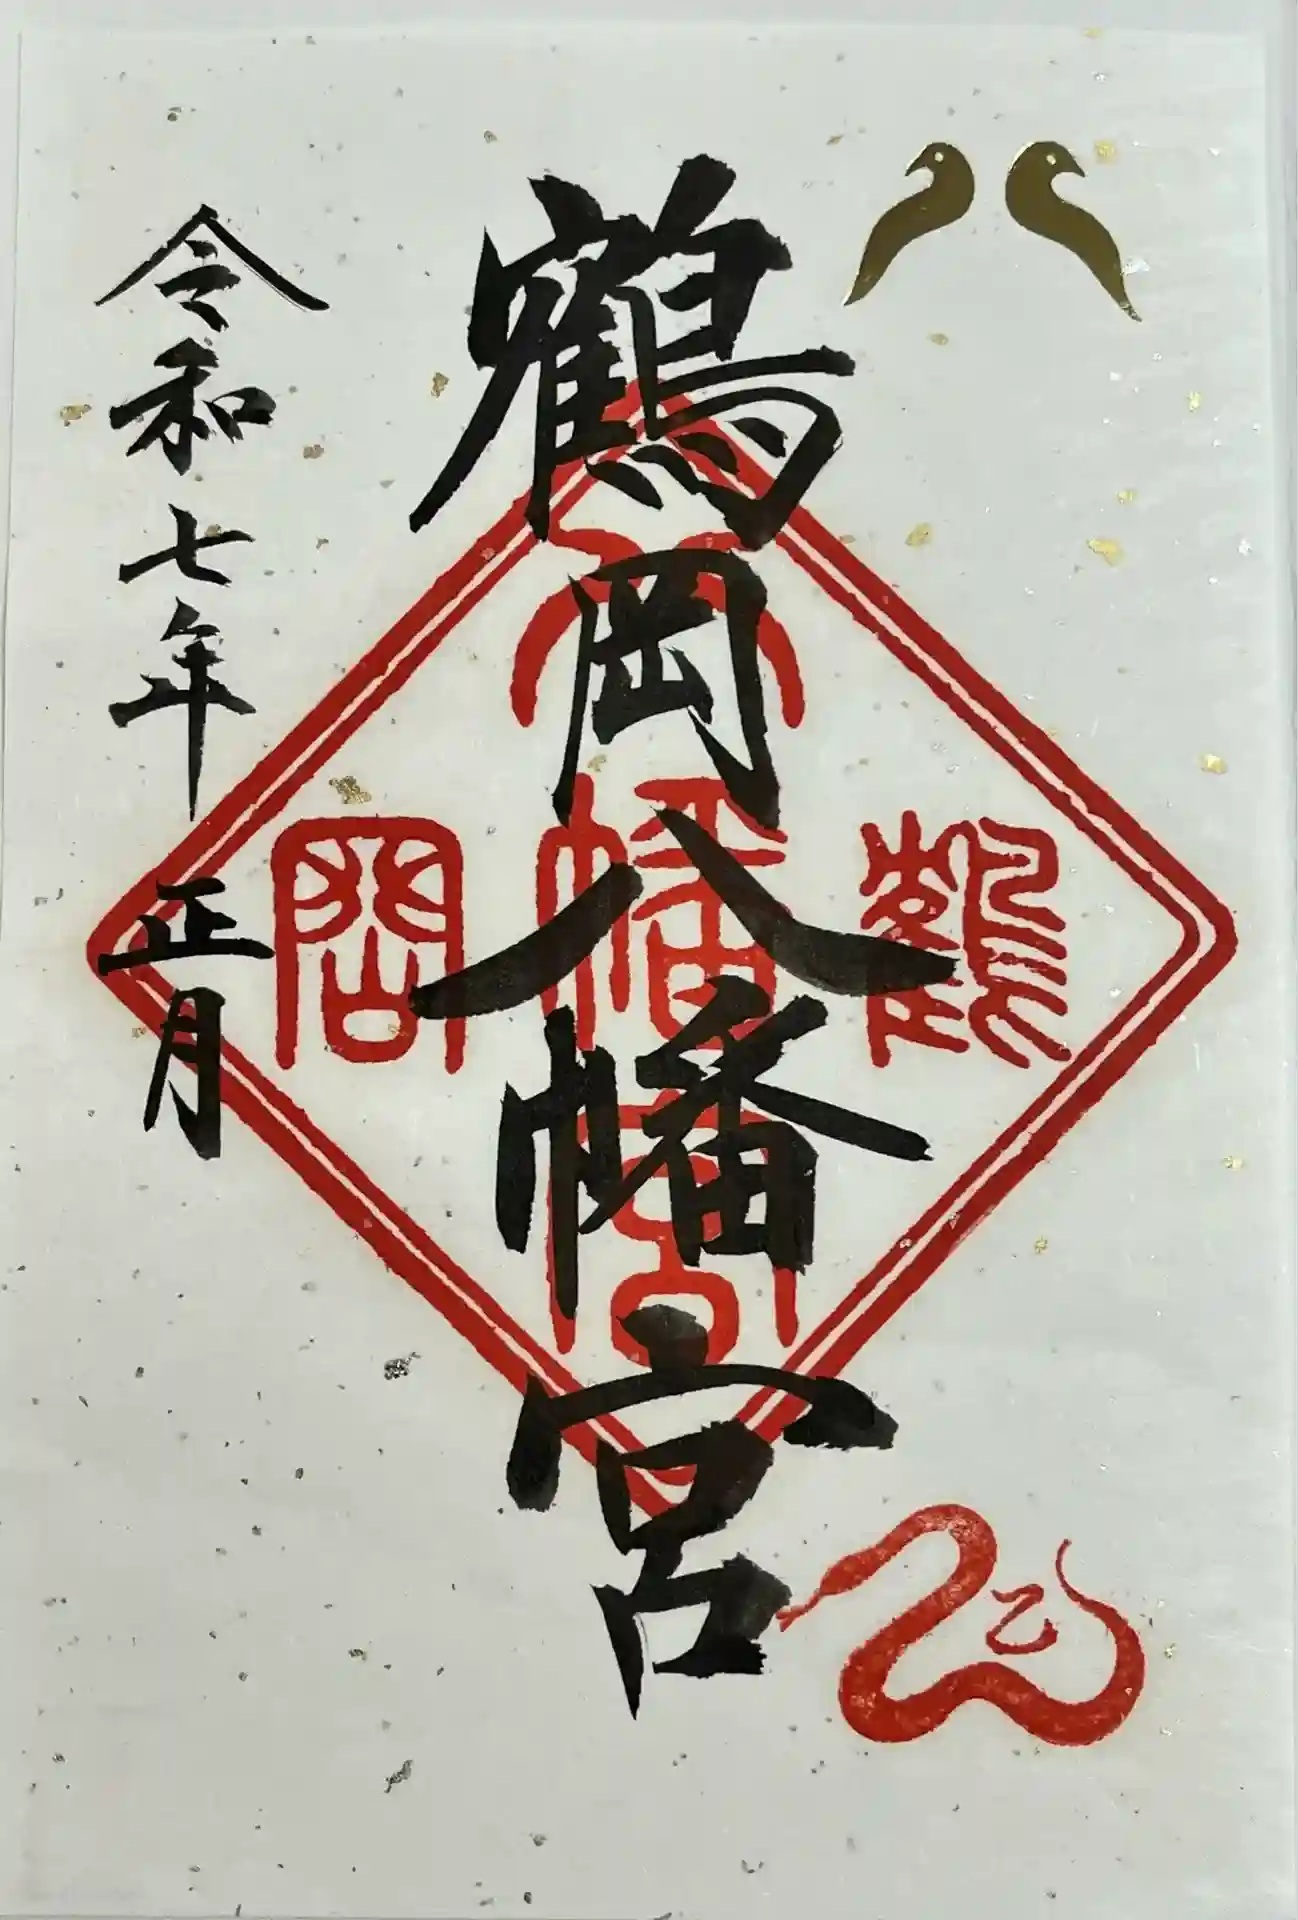 鶴岡八幡宮
令和七年正月
八
幡
宮
鶴
岡